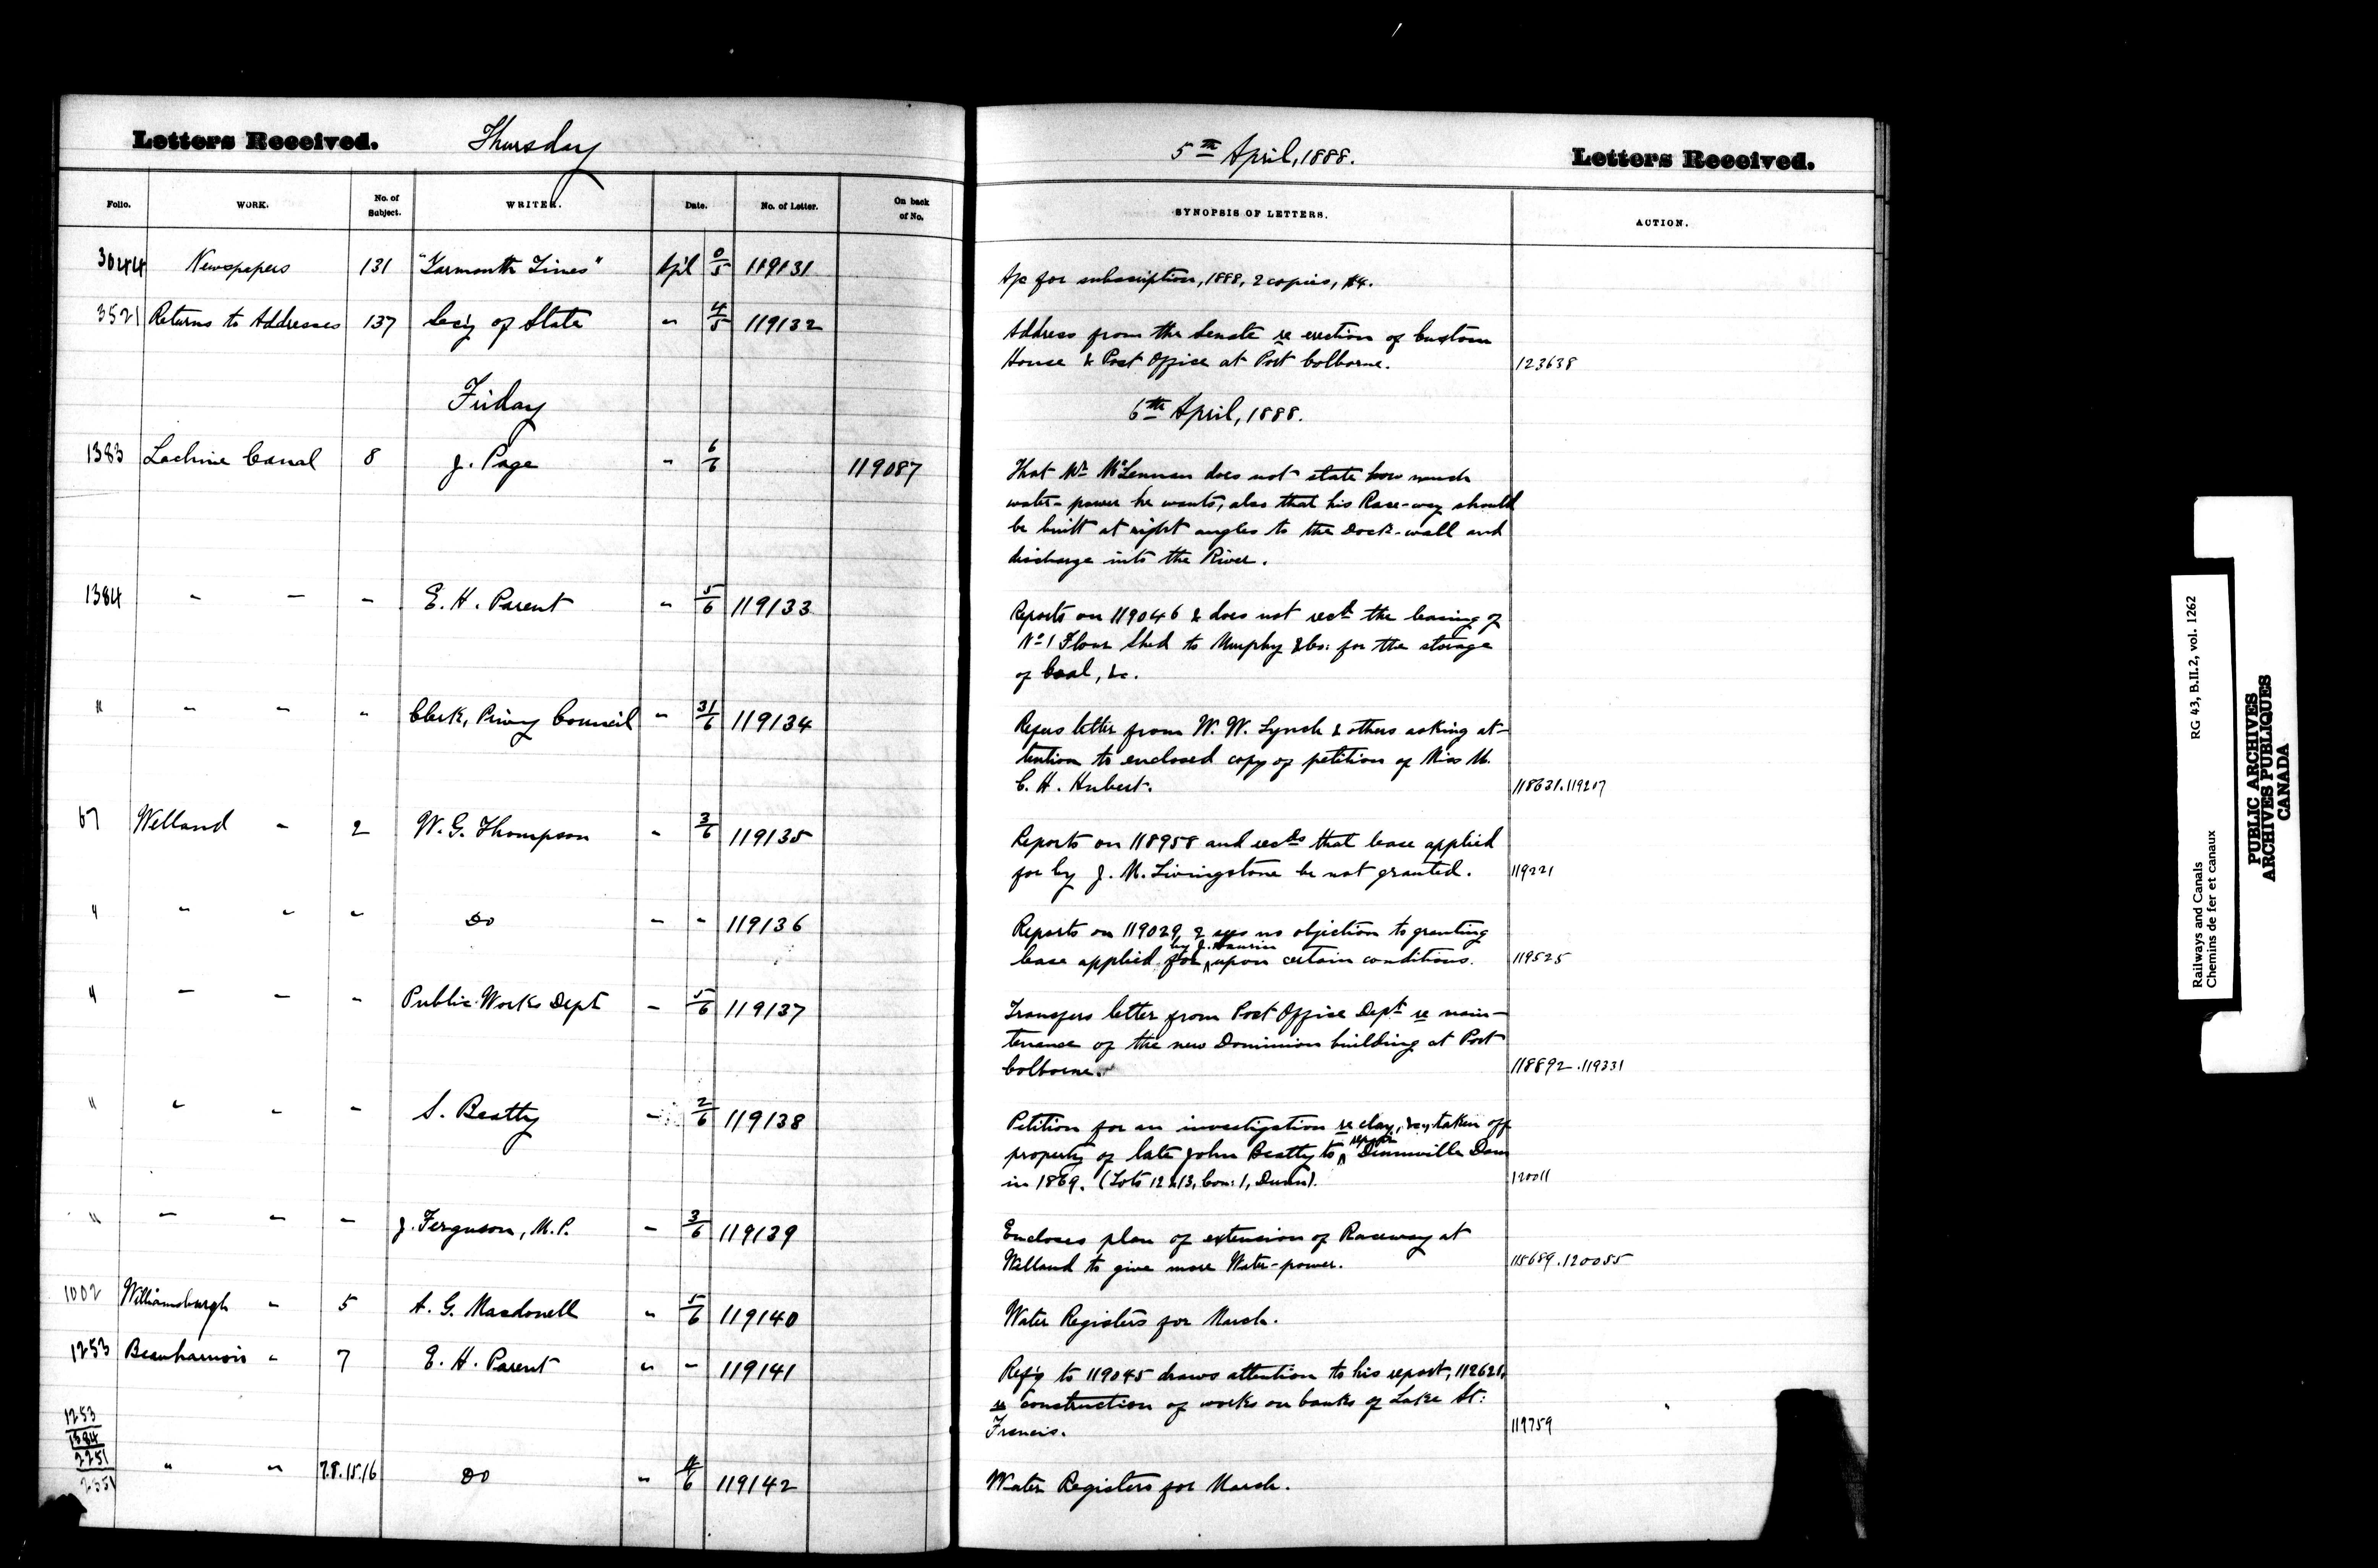 Letters Received. Thursday 5th April, 1888. Letters Received.
Folio. WORK. No. of Subject. WRITER. Date. No. of Letter. On back of No. SYNOPSIS OF LETTERS. ACTION.
3044 Newspapers 131 "Yarmouth Times" Apl 5 119131 A/c for subscription, 1888, 2 copies, $4.
3521 Returns to Addresses 137 Sec'y of State " 4/5 119132 Address from the Senate re erection of Custom
House & Post Office at Port Colborne. 123638
Friday 6th April, 1888.
1383 Lachine Canal 8 J. Page " 6/6 119087 That Mr McLennan does not state how much
water-power he wants, also that his Race-way should
be built at right angles to the Dock-wall and
discharge into the River.
1384 " " " E. H. Parent " 5/6 119133 Reports on 119046 & does not recd the leasing of
No 1 Flour Shed to Murphy & Co: for the storage
of Coal, &c.
" " " " Clerk, Privy Council " 31/6 119134 Refers letter from W. W. Lynch & others asking at-
tention to enclosed copy of petition of Miss M.
C. H. Hubert. 118631.119207
67 Welland " 2 W. G. Thompson " 3/6 119135 Reports on 118958 and recds that lease applied
for by J. M. Livingstone be not granted. 119221
" " " " Do " " 119136 Reports on 119029, & sees no objection to granting
lease applied for by J. upon certain conditions. 119525
" " " " Public Works Dept " 5/6 119137 Transfers letter from Post Office Dept re main-
tenance of the new Dominion building at Port
Colborne. 118892.119331
" " " " S. Beatty " 2/6 119138 Petition for an investigation re clay, &c, taken off
property of late John Beatty to repair Dunnville Dam
in 1869. (Lots 12 & 13, Con: 1, Dunn). 120011
" " " " J. Ferguson, M.P. " 3/6 119139 Encloses plan of extension of Raceway at
Welland to give more Water-power. 115689.120055
1002 Williamsburgh " 5 A. G. Macdonell " 5/6 119140 Water Registers for March.
1253 Beauharnois " 7 E. H. Parent " " 119141 Ref'g to 119045 draws attention to his report, 112621,
re construction of works on banks of Lake St:
Francis. 119759
1253
1384
2251
2551 " " 7.8.15.16 Do " 4/6 119142 Water Registers for March.
Railways and Canals RG 43, B.II.2, vol. 1262
Chemins de fer et canaux
PUBLIC ARCHIVES
ARCHIVES PUBLIQUES
CANADA